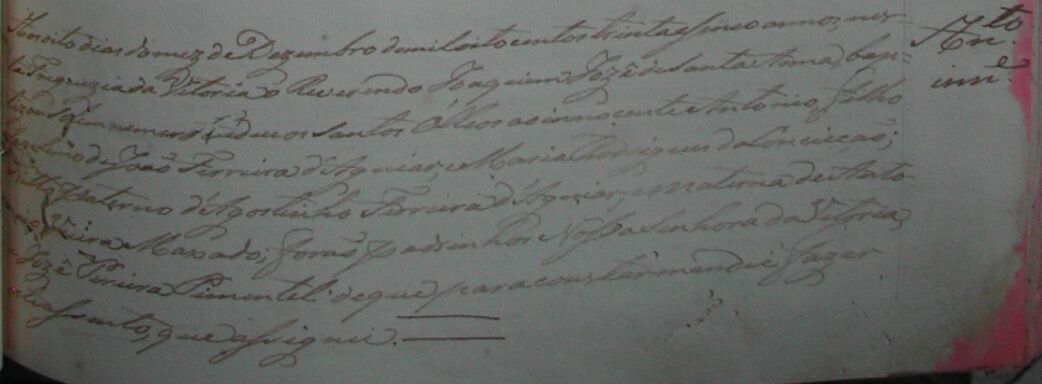 Aos oito dias do mez de Dezembro de mil oito centos trinta e sinco annos, nes-
ta Freguezia da Vitoria o Reverendo Joaquim Jozé de Santa Anna, bap-
tizou e os Santos Óleos ao innocente Antonio, filho
de João Ferreira d'Aguiar, e Maria Rodrigues da Conceicaõ;
paterno d'Agostinho Ferreira d'Aguiar, e materna de Anto-
nio Vieira Maxado; foraõ padrinhos Nossa Senhora da Vitoria,
e Jozé Pireira Pimentel: de que para constar mandei fazer
este assento, que assignei.
Anto.
inne